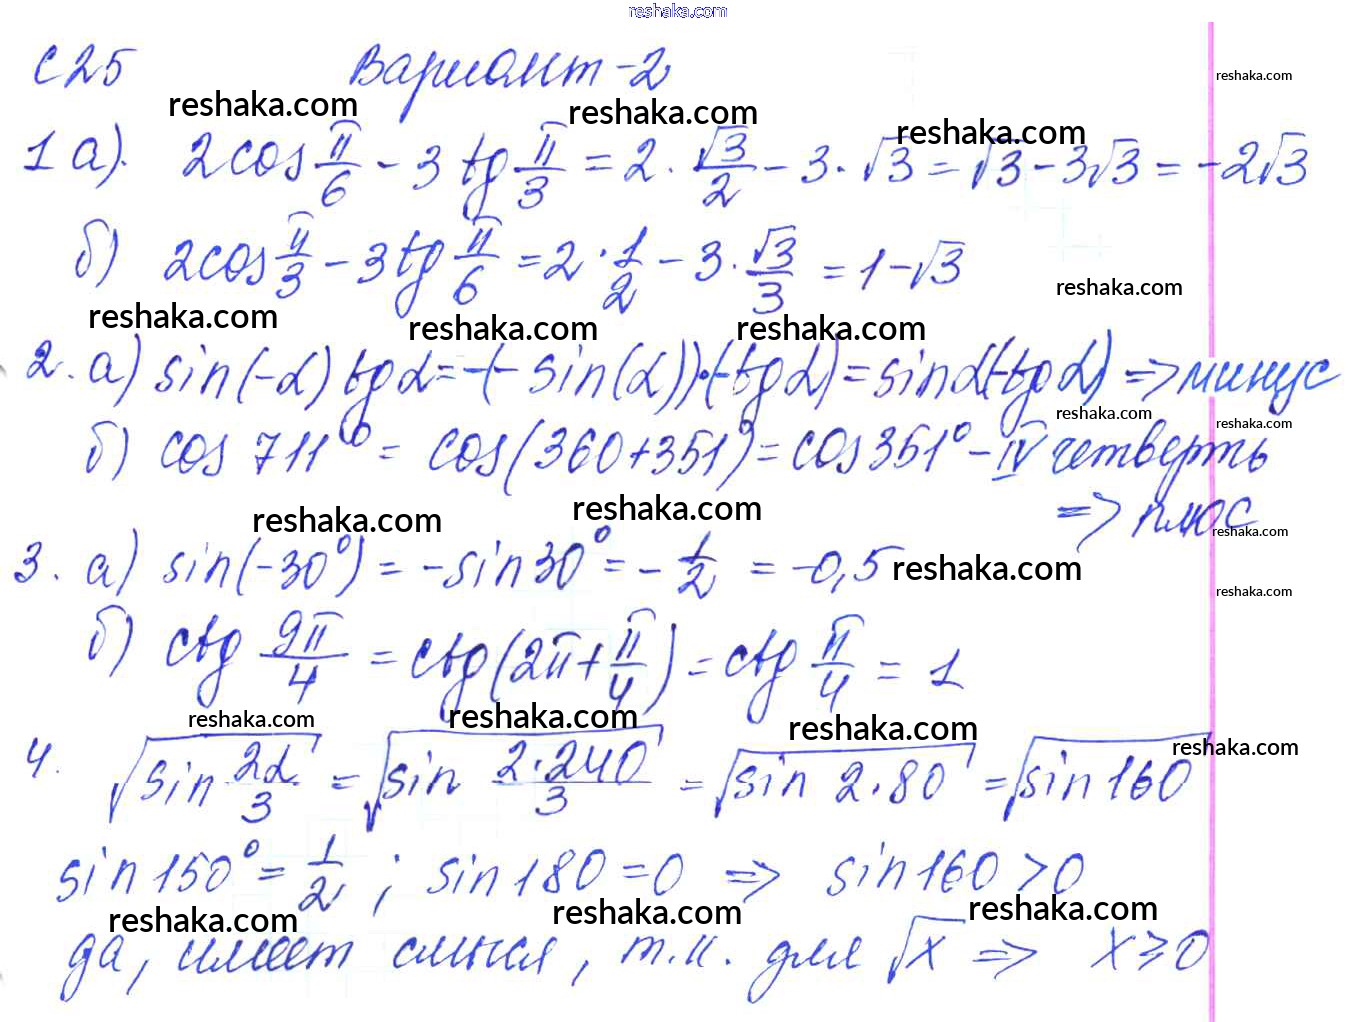 reshaka.com
С25 Вариант-2
reshaka.com
reshaka.com reshaka.com reshaka.com
1 а). 2cos π/6 - 3 tg π/3 = 2 · √3/2 - 3 · √3 = √3 - 3√3 = -2√3
б) 2cos π/3 - 3 tg π/6 = 2 · 1/2 - 3 · √3/3 = 1 - √3
reshaka.com
reshaka.com reshaka.com reshaka.com
2. а) sin(-α) tg α = -(- sin(α)) · (-tg α) = sin α (-tg α) => минус
reshaka.com reshaka.com
б) cos 711° = cos(360+351°) = cos 351° - IV четверть
=> плюс
reshaka.com reshaka.com reshaka.com
3. а) sin(-30°) = -sin 30° = - 1/2 = -0,5
reshaka.com reshaka.com
б) ctg 9π/4 = ctg(2π + π/4) = ctg π/4 = 1
reshaka.com reshaka.com reshaka.com reshaka.com
4. √(sin 2α/3) = √(sin 2·240/3) = √(sin 2·80) = √(sin 160)
sin 150° = 1/2 ; sin 180 = 0 => sin 160 > 0
reshaka.com reshaka.com reshaka.com
да, имеет смысл, т.к. для √x => x ≥ 0